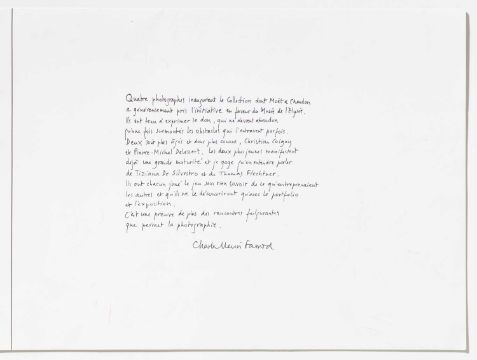 Quatre photographes inaugurent la Collection dont Moët & Chandon
a généreusement pris l'initiative en faveur du Musée de l'Elysée.
Ils ont tenu à exprimer le don, qui ne devient abandon
qu'une fois surmontés les obstacles qui l'entravent parfois.
Deux sont plus âgés et donc plus connus, Christian Coigny
et Pierre-Michel Delessert. Les deux plus jeunes manifestent
déjà une grande maturité et je gage qu'on entendra parler
de Tiziana De Silvestro et de Thomas Flechtner.
Ils ont chacun joué le jeu sans rien savoir de ce qu'entreprenaient
les autres et qu'ils ne le découvriront qu'avec le portfolio
et l'exposition.
C'est une preuve de plus des rencontres fulgurantes
que permet la photographie.
Charles-Henri Favrod